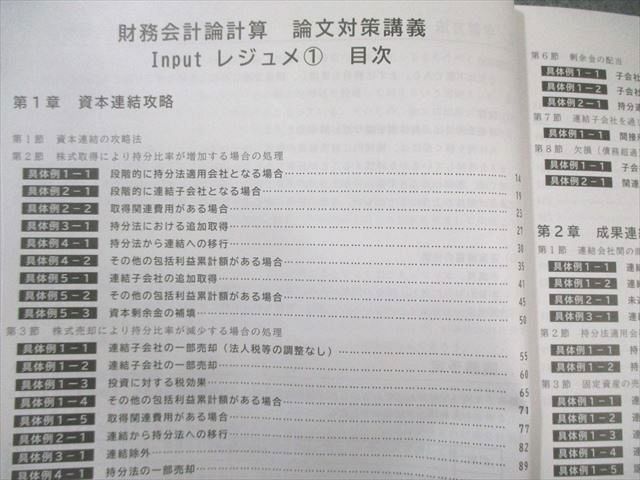 財務会計論計算　論文対策講義
Input レジュメ①　目次
第１章　資本連結攻略
第１節　資本連結の攻略法
第２節　株式取得により持分比率が増加する場合の処理
具体例１－１　段階的に持分法適用会社となる場合……14
具体例２－１　段階的に連結子会社となる場合……19
具体例２－２　取得関連費用がある場合……23
具体例３－１　持分法における追加取得……27
具体例４－１　持分法から連結への移行……30
具体例４－２　その他の包括利益累計額がある場合……35
具体例５－１　連結子会社の追加取得……41
具体例５－２　その他の包括利益累計額がある場合……45
具体例５－３　資本剰余金の補填……50
第３節　株式売却により持分比率が減少する場合の処理
具体例１－１　連結子会社の一部売却（法人税等の調整なし）……55
具体例１－２　連結子会社の一部売却……60
具体例１－３　投資に対する税効果……65
具体例１－４　その他の包括利益累計額がある場合……71
具体例１－５　取得関連費用がある場合……77
具体例２－１　連結から持分法への移行……82
具体例３－１　連結除外……89
具体例４－１　持分法の一部売却
第６節　剰余金の配当
具体例１－１　子会社
具体例１－２　子会
具体例２－１　持分
第７節　連結子会社を通じ
具体例１－１　間接
第８節　欠損（債務超過
具体例１－１　子会
具体例２－１　関連
第２章　成果連結
第１節　連結会社間の
具体例１－１　連結
具体例１－２　連結
具体例２－１　未
具体例３－１　連
第２節　持分法適用会
具体例１－１　持分
具体例１－２　持
第３節　固定資産の売
具体例１－１　連
具体例１－２　連
具体例１－３　連
具体例１－４　連
具体例１－５